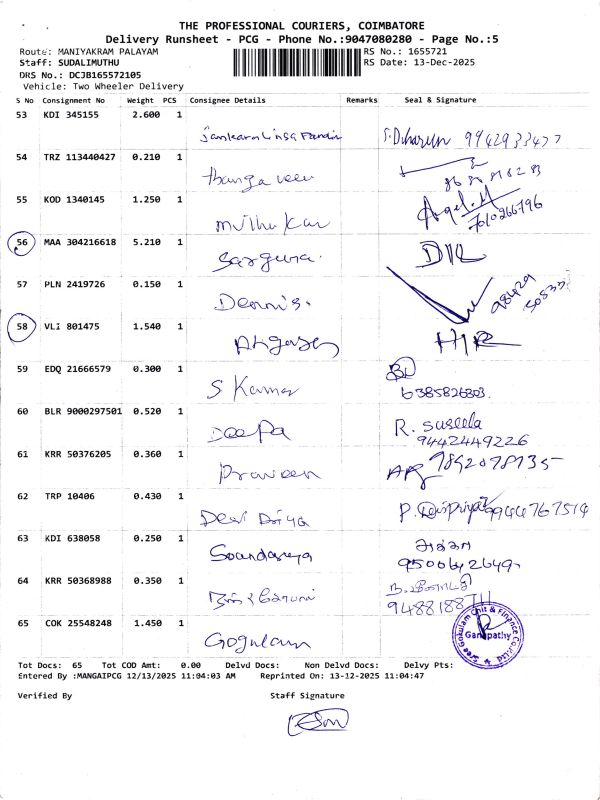 THE PROFESSIONAL COURIERS, COIMBATORE
Delivery Runsheet - PCG - Phone No.:9047080280 - Page No.:5
Route: MANIYAKRAM PALAYAM RS No.: 1655721
Staff: SUDALIMUTHU RS Date: 13-Dec-2025
DRS No.: DCJB165572105
Vehicle: Two Wheeler Delivery
S No Consignment No Weight PCS Consignee Details Remarks Seal & Signature
53 KDI 345155 2.600 1 9942933477
54 TRZ 113440427 0.210 1 Thangaveer
55 KOD 1340145 1.250 1 Muthukar 7010266796
56 MAA 304216618 5.210 1 Sarguna
57 PLN 2419726 0.150 1 Dennis
58 VLI 801475 1.540 1
59 EDQ 21666579 0.300 1 S Kumar 6385826803
60 BLR 9000297501 0.520 1 Deepa R. Suseela
9442449226
61 KRR 50376205 0.360 1 Praveen
62 TRP 10406 0.430 1 Devi Priya 9944767514
63 KDI 638058 0.250 1 Soundarya
9500642649
64 KRR 50368988 0.350 1
65 COK 25548248 1.450 1 Gogulam
Sree Gokulam Chit & Finance Co.(P) Ltd
Ganapathy
Tot Docs: 65 Tot COD Amt: 0.00 Delvd Docs: Non Delvd Docs: Delvy Pts:
Entered By :MANGAIPCG 12/13/2025 11:04:03 AM Reprinted On: 13-12-2025 11:04:47
Verified By Staff Signature